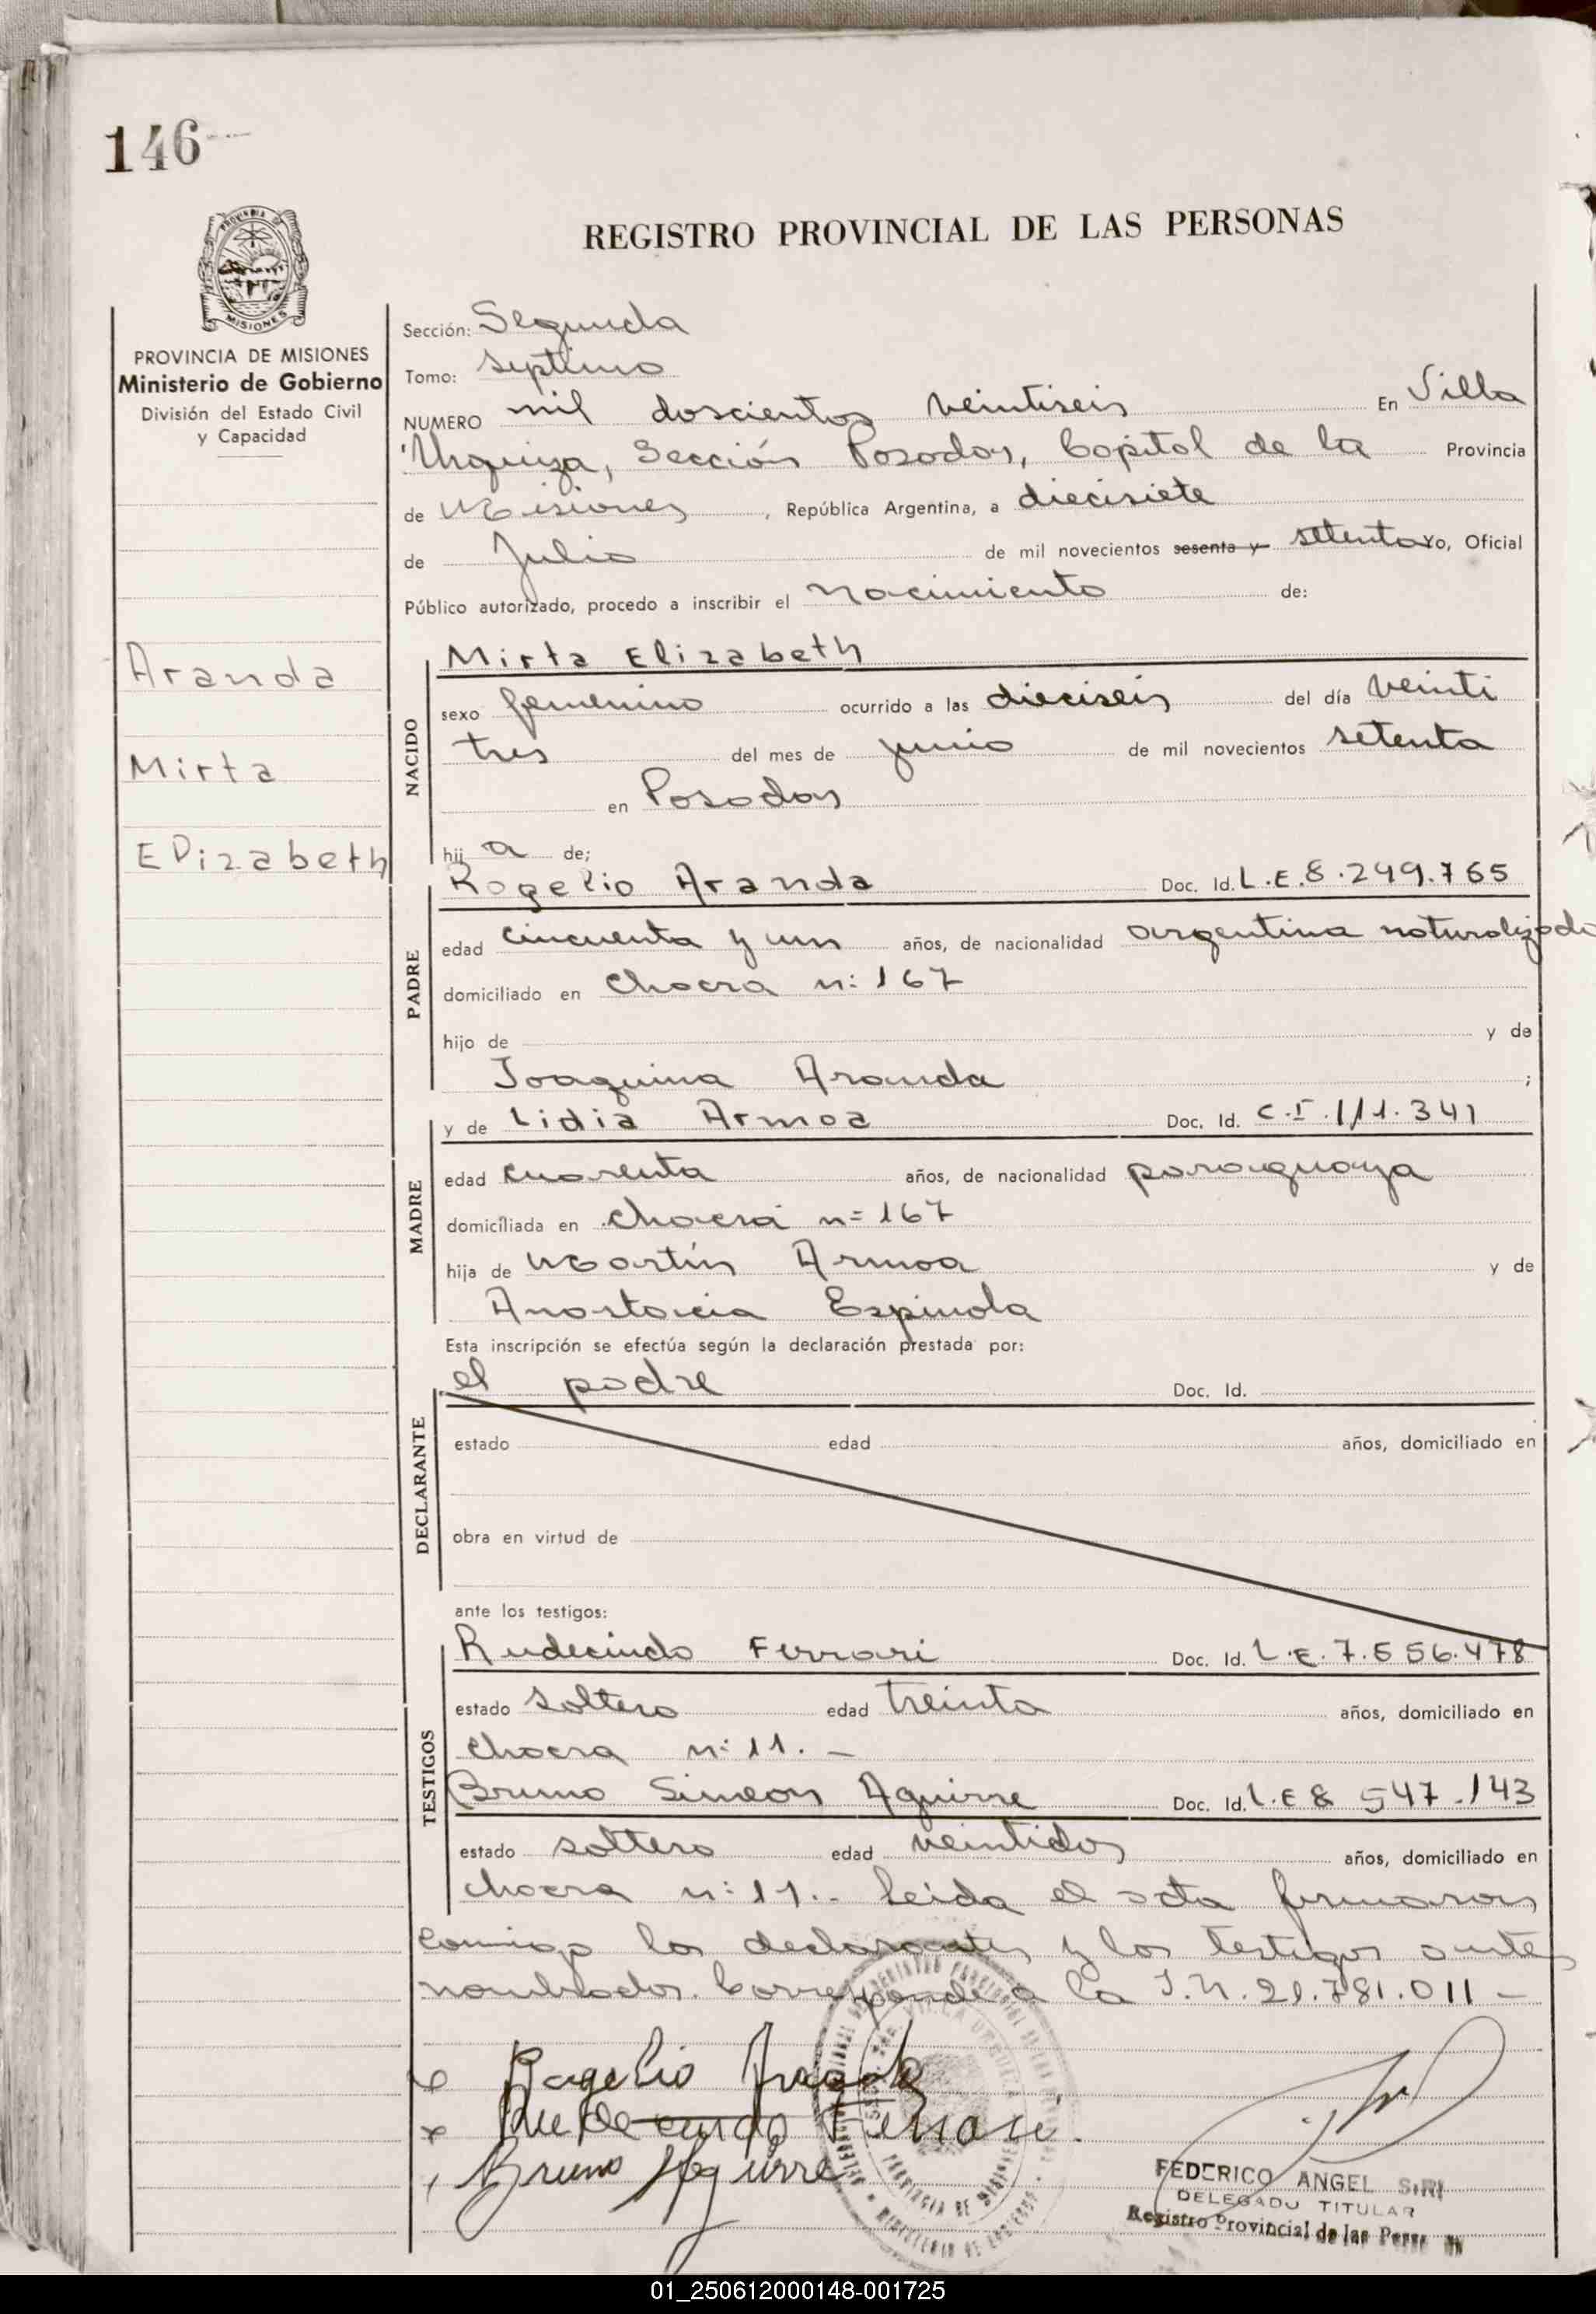 146
REGISTRO PROVINCIAL DE LAS PERSONAS
PROVINCIA DE MISIONES
Ministerio de Gobierno
División del Estado Civil
y Capacidad
Aranda
Mirta
Elizabeth
Sección: Segunda
Tomo: septimo
NUMERO mil doscientos veintiseis En Villa
Urquiza, Sección Posadas, Capital de la Provincia
de Misiones, República Argentina, a diecisiete
de Julio de mil novecientos sesenta y setenta yo, Oficial
Público autorizado, procedo a inscribir el nacimiento de:
NACIDO
Mirta Elizabeth
sexo femenino ocurrido a las dieciseis del día veinti
tres del mes de junio de mil novecientos setenta
en Posadas
hij a de;
PADRE
Rogelio Aranda Doc. Id. L.E.8.249.765
edad cincuenta y un años, de nacionalidad argentina naturalizado
domiciliado en chacra n: 167
hijo de y de
Joaquina Aranda ;
MADRE
y de Lidia Armoa Doc. Id. C.I.111.341
edad cuarenta años, de nacionalidad paraguaya
domiciliada en chacra n= 167
hija de Martín Armoa y de
Anastacia Espinola
Esta inscripción se efectúa según la declaración prestada por:
DECLARANTE
el padre Doc. Id.
estado edad años, domiciliado en
obra en virtud de
ante los testigos:
TESTIGOS
Rudecindo Ferrari Doc. Id. L.E.7.556.478
estado soltero edad treinta años, domiciliado en
chacra n: 11. –
Bruno Simeon Aguirre Doc. Id. L.E 8 547.143
estado soltero edad veintidos años, domiciliado en
chacra n: 11.- Leida el acta firmaron
conmigo los declarantes y los testigos antes
nombrados. Corresponde a la I.N. 21.781.011 –
Rogelio Aranda
Rudecindo Ferrari.
Bruno Aguirre
PROVINCIA DE MISIONES
FEDERICO ANGEL SIRI
DELEGADO TITULAR
Registro Provincial de las Pers
01_250612000148-001725